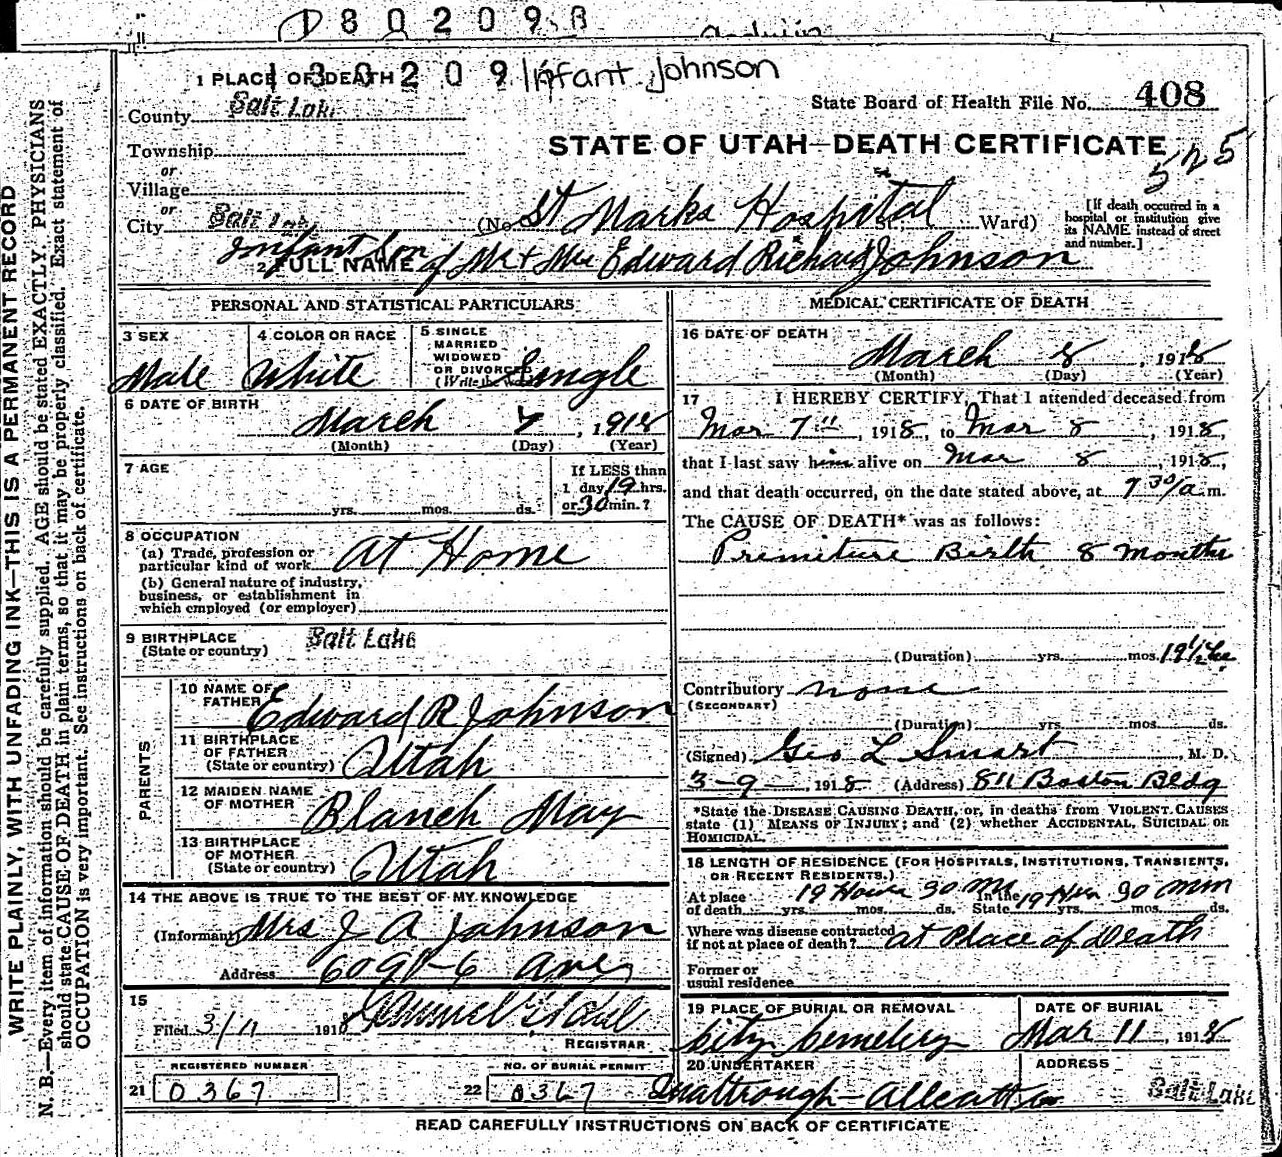 1 8 0 2 0 9 8
1 3 0 2 0 9 Infant Johnson
1 PLACE OF DEATH
County Salt Lake
State Board of Health File No. 408
Township
STATE OF UTAH—DEATH CERTIFICATE
525
or
Village
or
City Salt Lake (No. St Marks Hospital St.; Ward)
[If death occurred in a
hospital or institution give
its NAME instead of street
and number.]
2 FULL NAME Infant Son of Mr + Mrs Edward Richard Johnson
PERSONAL AND STATISTICAL PARTICULARS
3 SEX Male
4 COLOR OR RACE White
5 SINGLE
MARRIED
WIDOWED
OR DIVORCED
(Write the word) Single
6 DATE OF BIRTH
March 7, 1918
(Month) (Day) (Year)
7 AGE
yrs. mos. ds.
If LESS than
1 day 19 hrs.
or 30 min.?
8 OCCUPATION
(a) Trade, profession or
particular kind of work At Home
(b) General nature of industry,
business, or establishment in
which employed (or employer)
9 BIRTHPLACE
(State or country) Salt Lake
PARENTS
10 NAME OF
FATHER Edward R Johnson
11 BIRTHPLACE
OF FATHER
(State or country) Utah
12 MAIDEN NAME
OF MOTHER Blanch May
13 BIRTHPLACE
OF MOTHER
(State or country) Utah
14 THE ABOVE IS TRUE TO THE BEST OF MY KNOWLEDGE
(Informant) Mrs J A Johnson
Address 609 6 Ave
15
Filed 3/11 1918
REGISTRAR
REGISTERED NUMBER
21 0367
NO. OF BURIAL PERMIT
22 0367
MEDICAL CERTIFICATE OF DEATH
16 DATE OF DEATH
March 8, 1918
(Month) (Day) (Year)
17 I HEREBY CERTIFY, That I attended deceased from
Mar 7th, 1918, to Mar 8, 1918,
that I last saw him alive on Mar 8, 1918,
and that death occurred, on the date stated above, at 7 30/a m.
The CAUSE OF DEATH* was as follows:
Premiture Birth 8 months
(Duration) yrs. mos. 19 1/2 hrs
Contributory none
(SECONDARY)
(Duration) yrs. mos. ds.
(Signed) Geo L Smart, M. D.
3-9, 1918 (Address) 811 Boston Bldg
*State the DISEASE CAUSING DEATH, or, in deaths from VIOLENT CAUSES
state (1) MEANS OF INJURY; and (2) whether ACCIDENTAL, SUICIDAL OR
HOMICIDAL.
18 LENGTH OF RESIDENCE (FOR HOSPITALS, INSTITUTIONS, TRANSIENTS,
OR RECENT RESIDENTS.)
At place 19 Hours 30 In the 19 Hrs 30 min
of death yrs. mos. ds. State yrs. mos. ds.
Where was disease contracted
if not at place of death? At Place of Death
Former or
usual residence
19 PLACE OF BURIAL OR REMOVAL
City Cemetery
DATE OF BURIAL
Mar 11, 1918
20 UNDERTAKER
ADDRESS
Salt Lake
READ CAREFULLY INSTRUCTIONS ON BACK OF CERTIFICATE
WRITE PLAINLY, WITH UNFADING INK—THIS IS A PERMANENT RECORD
N. B.—Every item of information should be carefully supplied. AGE should be stated EXACTLY. PHYSICIANS
should state CAUSE OF DEATH in plain terms, so that it may be properly classified. Exact statement of
OCCUPATION is very important. See instructions on back of certificate.